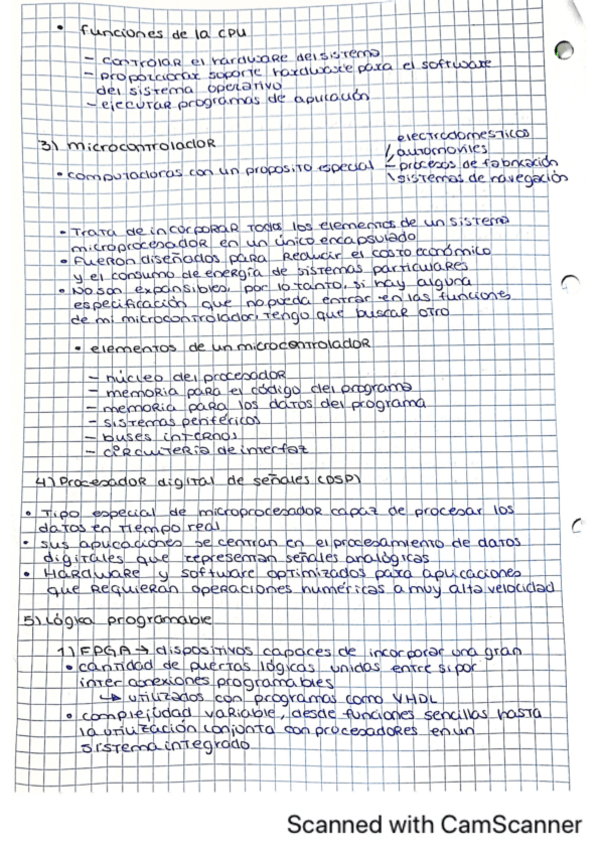 • funciones de la CPU
– controlar el hardware del sistema
– proporcionar soporte hardware para el software
del sistema operativo
– ejecutar programas de aplicación
3) microcontrolador
• computadoras con un proposito especial
electrodomesticos
automoviles
procesos de fabricación
sistemas de navegación
• Trata de incorporar todos los elementos de un sistema
microprocesador en un único encapsulado
• Fueron diseñados para reducir el costo económico
y el consumo de energía de sistemas particulares
• No son expansibles, por lo tanto, si hay alguna
especificación que no pueda entrar en las funciones
de mi microcontrolador, tengo que buscar otro
• elementos de un microcontrolador
– núcleo del procesador
– memoria para el código del programa
– memoria para los datos del programa
– sistemas periféricos
– buses internos
– circuiteria de interfaz
4) Procesador digital de señales (DSP)
• Tipo especial de microprocesador capaz de procesar los
datos en tiempo real
• sus aplicaciones se centran en el procesamiento de datos
digitales que representan señales analógicas
• Hardware y software optimizados para aplicaciones
que requieran operaciones numéricas a muy alta velocidad
5) lógica programable
1) FPGA → dispositivos capaces de incorporar una gran
• cantidad de puertas lógicas unidas entre si por
inter conexiones programables
↳ utilizados con programas como VHDL
• complejidad variable, desde funciones sencillas hasta
la utilización conjunta con procesadores en un
sistema integrado
Scanned with CamScanner